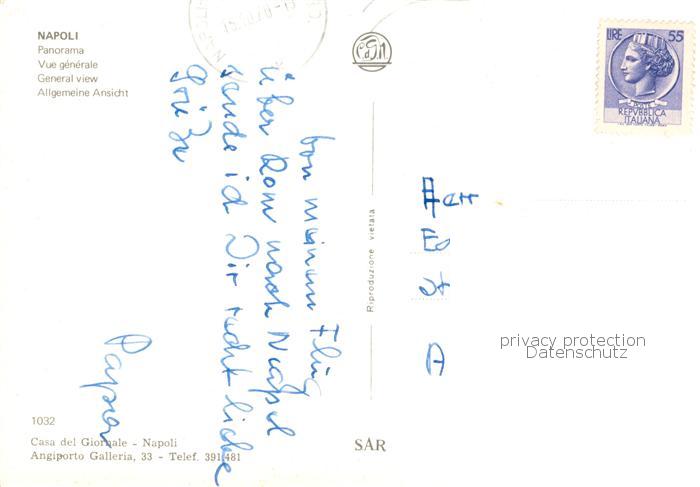 NAPOLI
Panorama
Vue générale
General view
Allgemeine Ansicht
LIRE 55
POSTE
REPVBBLICA
ITALIANA
Von meinem Flug
über Rom nach Neapel
sende ich Dir recht liebe
Grüße
Papa
Riproduzione vietata
Herr
privacy protection
Datenschutz
1032
Casa del Giornale - Napoli
Angiporto Galleria, 33 - Telef. 391481
SAR